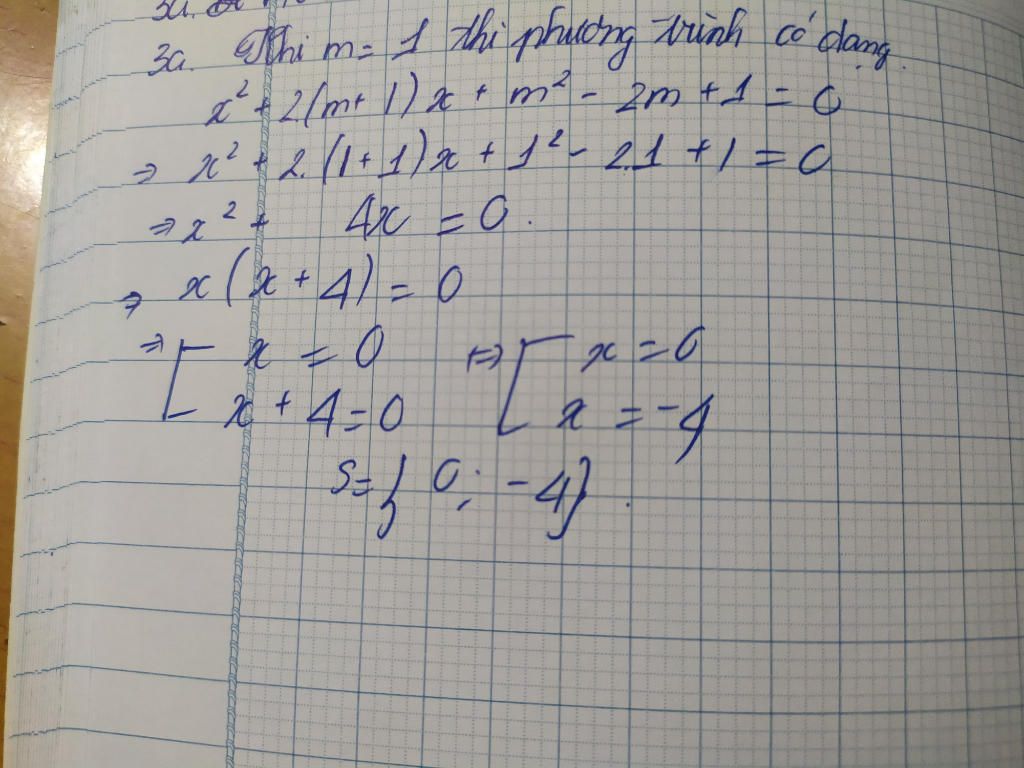 3a.
3a. Khi m = 1 thì phương trình có dạng.
x² + 2(m+1)x + m² - 2m + 1 = 0
=> x² + 2.(1+1)x + 1² - 2.1 + 1 = 0
=> x² + 4x = 0.
=> x(x+4) = 0
=> [ x = 0 <=> [ x = 0
x + 4 = 0 x = -4
S = { 0; -4} .